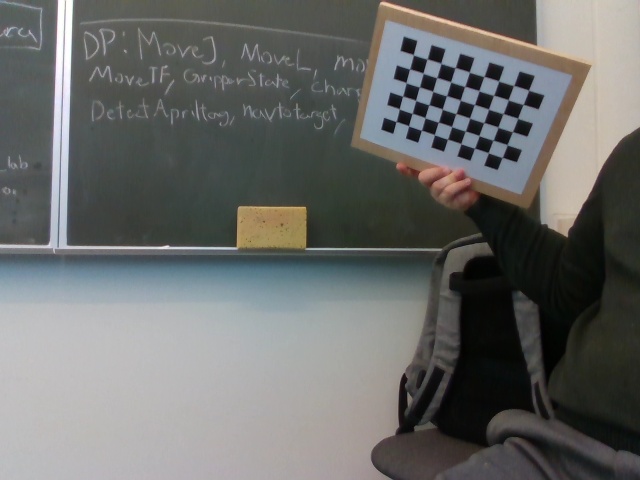 DP: MoveJ, MoveL, mo
MoveTF, GripperState, char
Detect Apriltag, navtotarget,
_lab